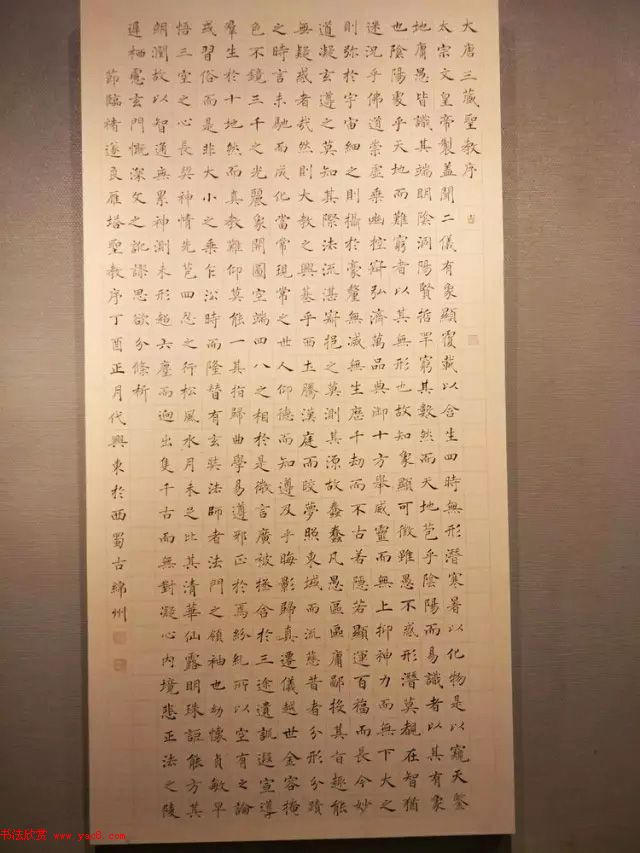 大唐三藏聖教序
太宗文皇帝製蓋聞二儀有象顯覆載以含生四時無形潛寒暑以化物是以窺天鑒
地庸愚皆識其端明陰洞陽賢哲罕窮其數然而天地苞乎陰陽而易識者以其有象
也陰陽處乎天地而難窮者以其無形也故知象顯可徵雖愚不惑形潛莫覩在智猶
迷況乎佛道崇虛乘幽控寂弘濟萬品典御十方舉威靈而無上抑神力而無下大之
則弥於宇宙細之則攝於豪釐無滅無生歷千劫而不古若隱若顯運百福而長今妙
道凝玄遵之莫知其際法流湛寂挹之莫測其源故蠢蠢凡愚區區庸鄙投其旨趣能
無疑惑者哉然則大教之興基乎西土騰漢庭而皎夢照東域而流慈昔者分形分蹟
之時言未馳而成化當常現常之世人仰德而知遵及乎晦影歸真遷儀越世金容掩
色不鏡三千之光麗象開圖空端四八之相於是微言廣被拯含於三途遺訓遐宣導
羣生於十地然而真教難仰莫能一其指歸曲學易遵邪正於焉紛糺所以空有之論
或習俗而是非大小之乘乍沿時而隆替有玄奘法師者法門之領袖也幼懷貞敏早
悟三空之心長契神情先苞四忍之行松風水月未足比其清華仙露明珠詎能方其
朗潤故以智通無累神測未形超六塵而迥出隻千古而無對凝心內境悲正法之陵
遲栖慮玄門慨深文之訛謬思欲分條析
節臨褚遂良雁塔聖教序丁酉正月代興東於西蜀古綿州
书法欣赏 www.yac8.com